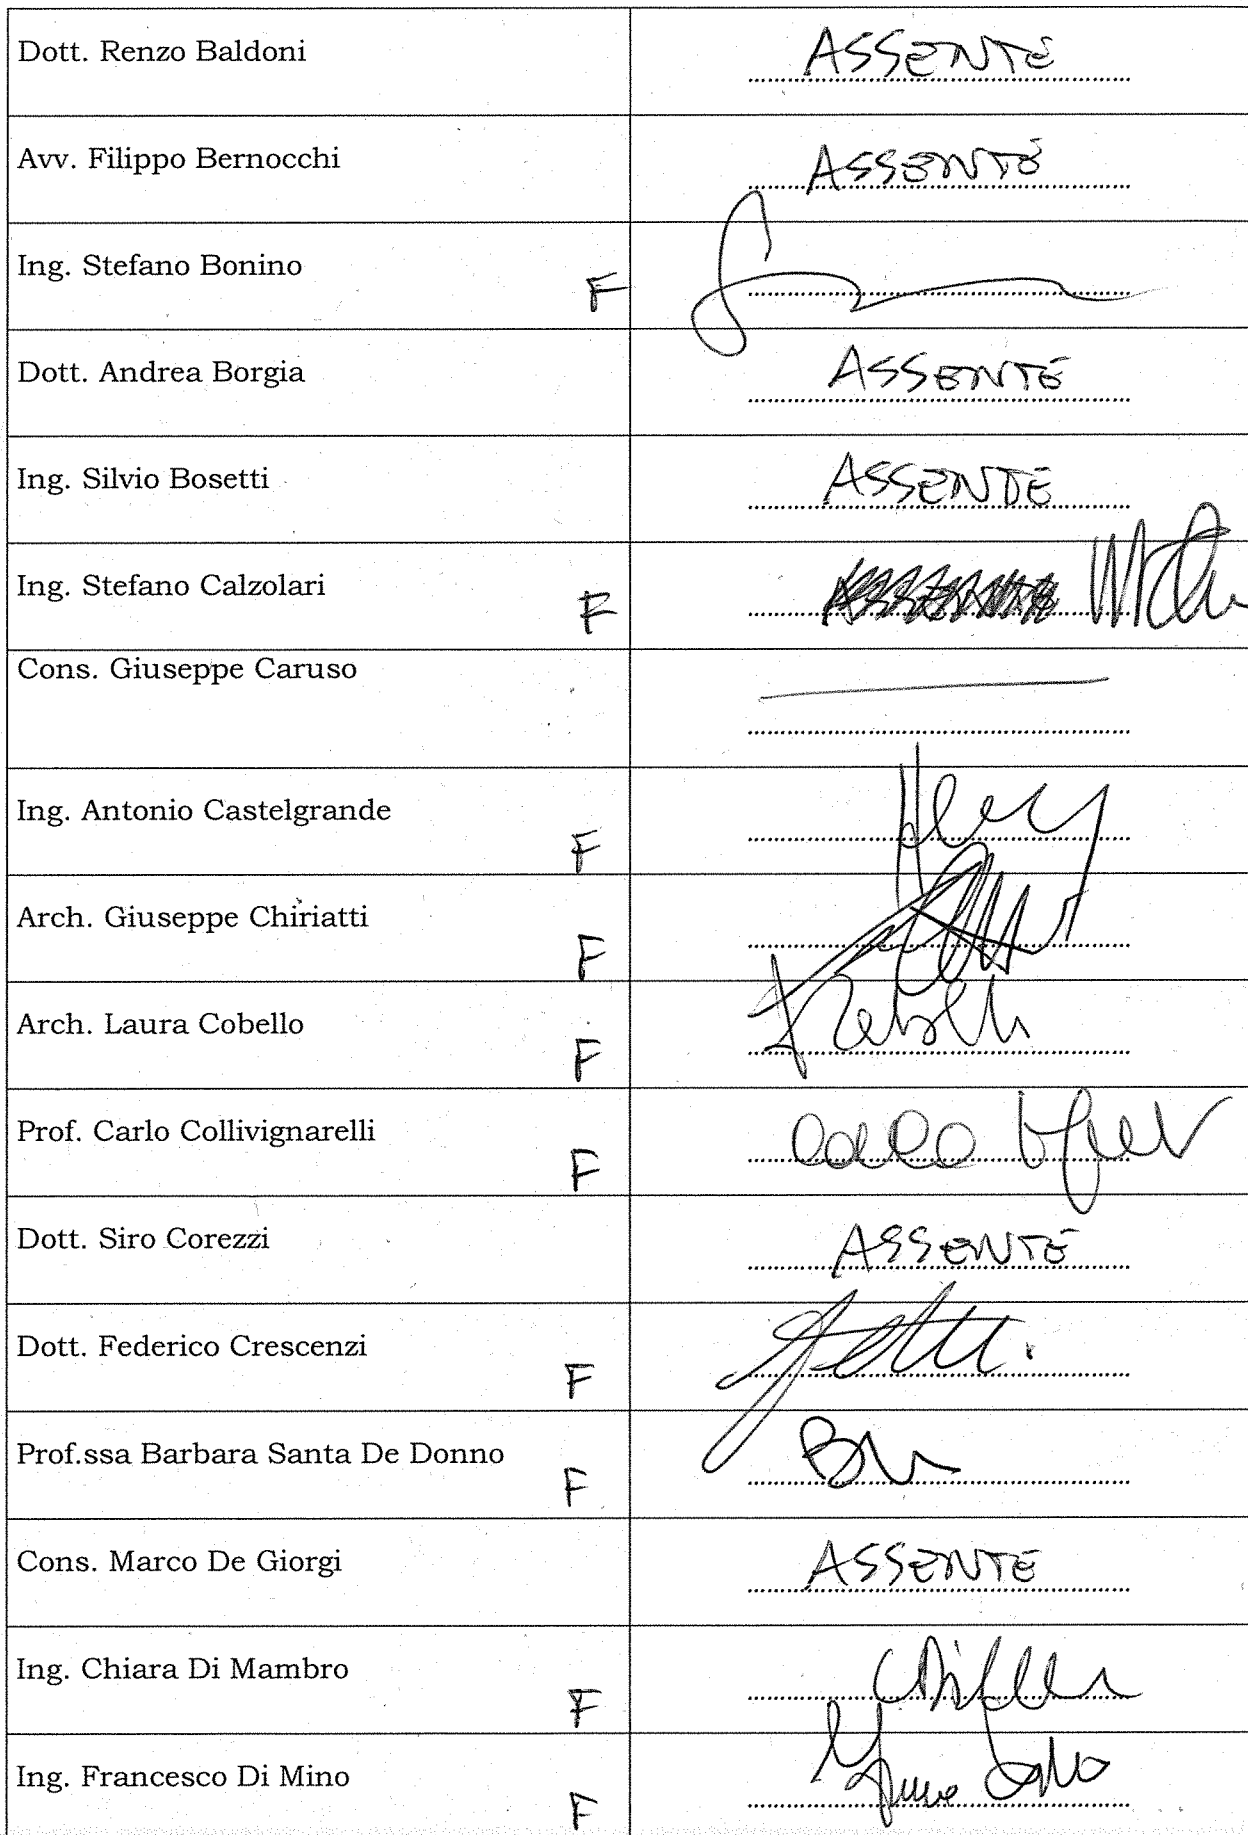 Dott. Renzo Baldoni ASSENTE
Avv. Filippo Bernocchi ASSENTE
Ing. Stefano Bonino F
Dott. Andrea Borgia ASSENTE
Ing. Silvio Bosetti ASSENTE
Ing. Stefano Calzolari F
Cons. Giuseppe Caruso
Ing. Antonio Castelgrande F
Arch. Giuseppe Chiriatti F
Arch. Laura Cobello F
Prof. Carlo Collivignarelli F
Dott. Siro Corezzi ASSENTE
Dott. Federico Crescenzi F
Prof.ssa Barbara Santa De Donno F
Cons. Marco De Giorgi ASSENTE
Ing. Chiara Di Mambro F
Ing. Francesco Di Mino F